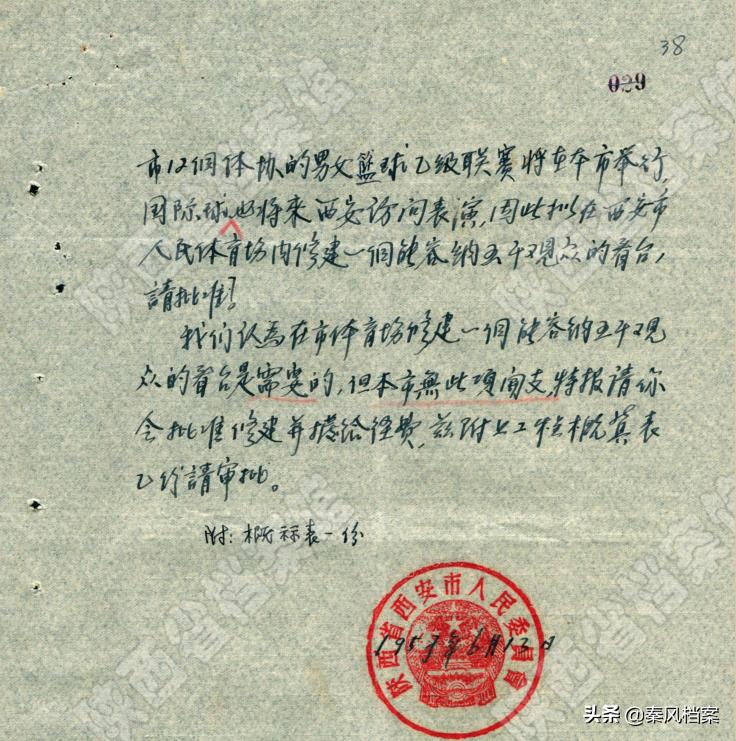 38
029
市12個体协的男女籃球乙级联赛将在本市举行
国际球也将来西安访问表演,因此拟在西安市
人民体育场内修建一個能容纳五千观众的看台,
請批准!
我们认為在市体育场修建一個能容纳五千观
众的看台是需要的,但本市無此項開支,特报请你
会批准修建并撥给经费,兹附上工程概算表
乙份請审批。
附:概算表一份
陕西省西安市人民委員會
1957年6月13日
陕西省档案馆
头条 @秦风档案